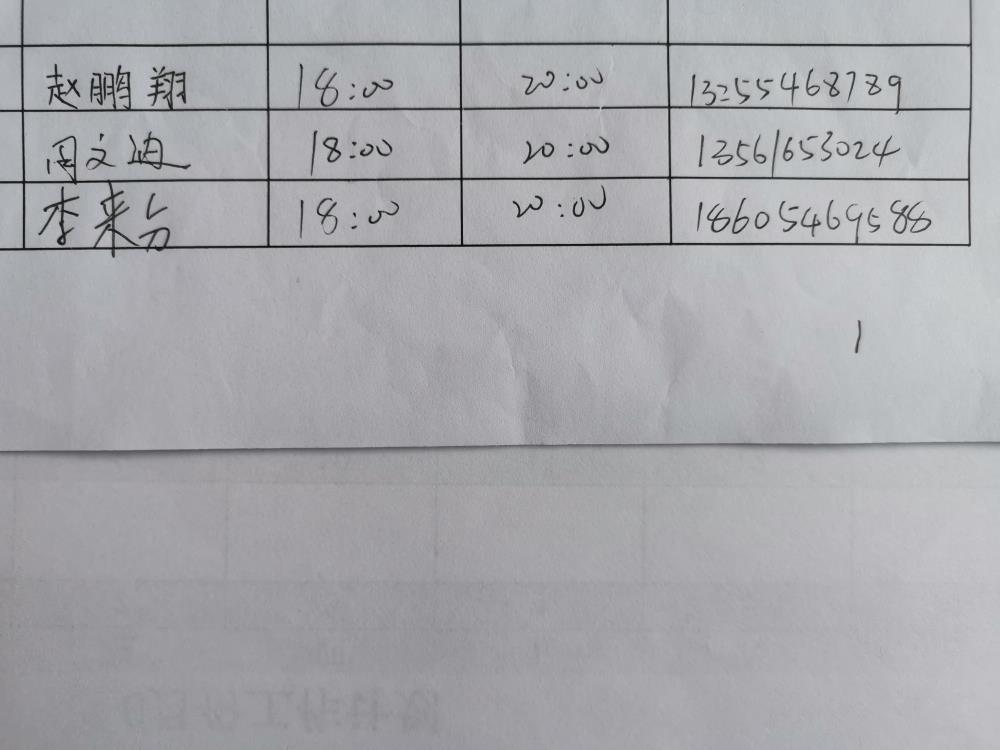 赵鹏翔 18:00 20:00 13255468789
周文迪 18:00 20:00 13561653024
李来台 18:00 20:00 18605469588
1